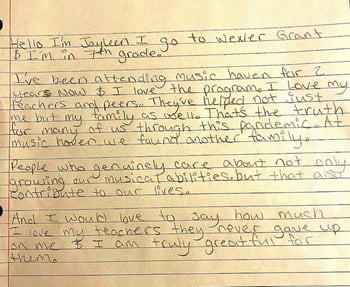 Hello I'm Jayleen I go to Wexler Grant
& I'm in 7th grade.
I've been attending music haven for 2
years now & I love the program. I love my
teachers and peers. They've helped not just
me but my family as well. Thats the truth
for many of us through this pandemic. At
music haven we found another family.
People who genuinely care about not only
growing our musical abilities, but that also
contribute to our lives.
And I would love to say how much
I love my teachers they never gave up
on me & I am truly greatful for
them.